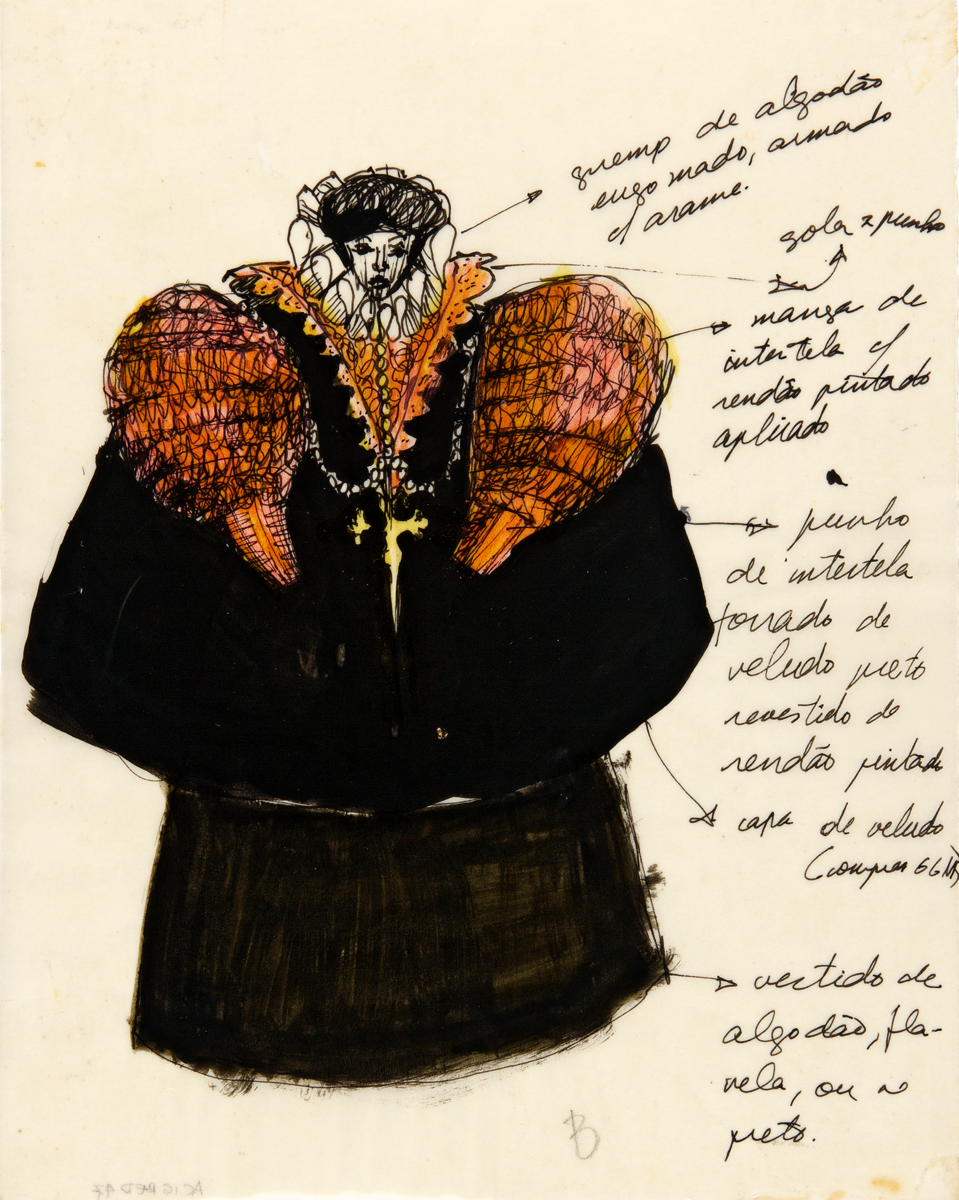 guemp de algodão
engomado, armado
c/ arame.
gola e punho
manga de
intertela c/
rendão pintado
aplicado
punho
de intertela
forrado de
veludo preto
revestido de
rendão pintado
capa de veludo
(compras 66
vestido de
algodão, fla-
nela, ou
preto.
B